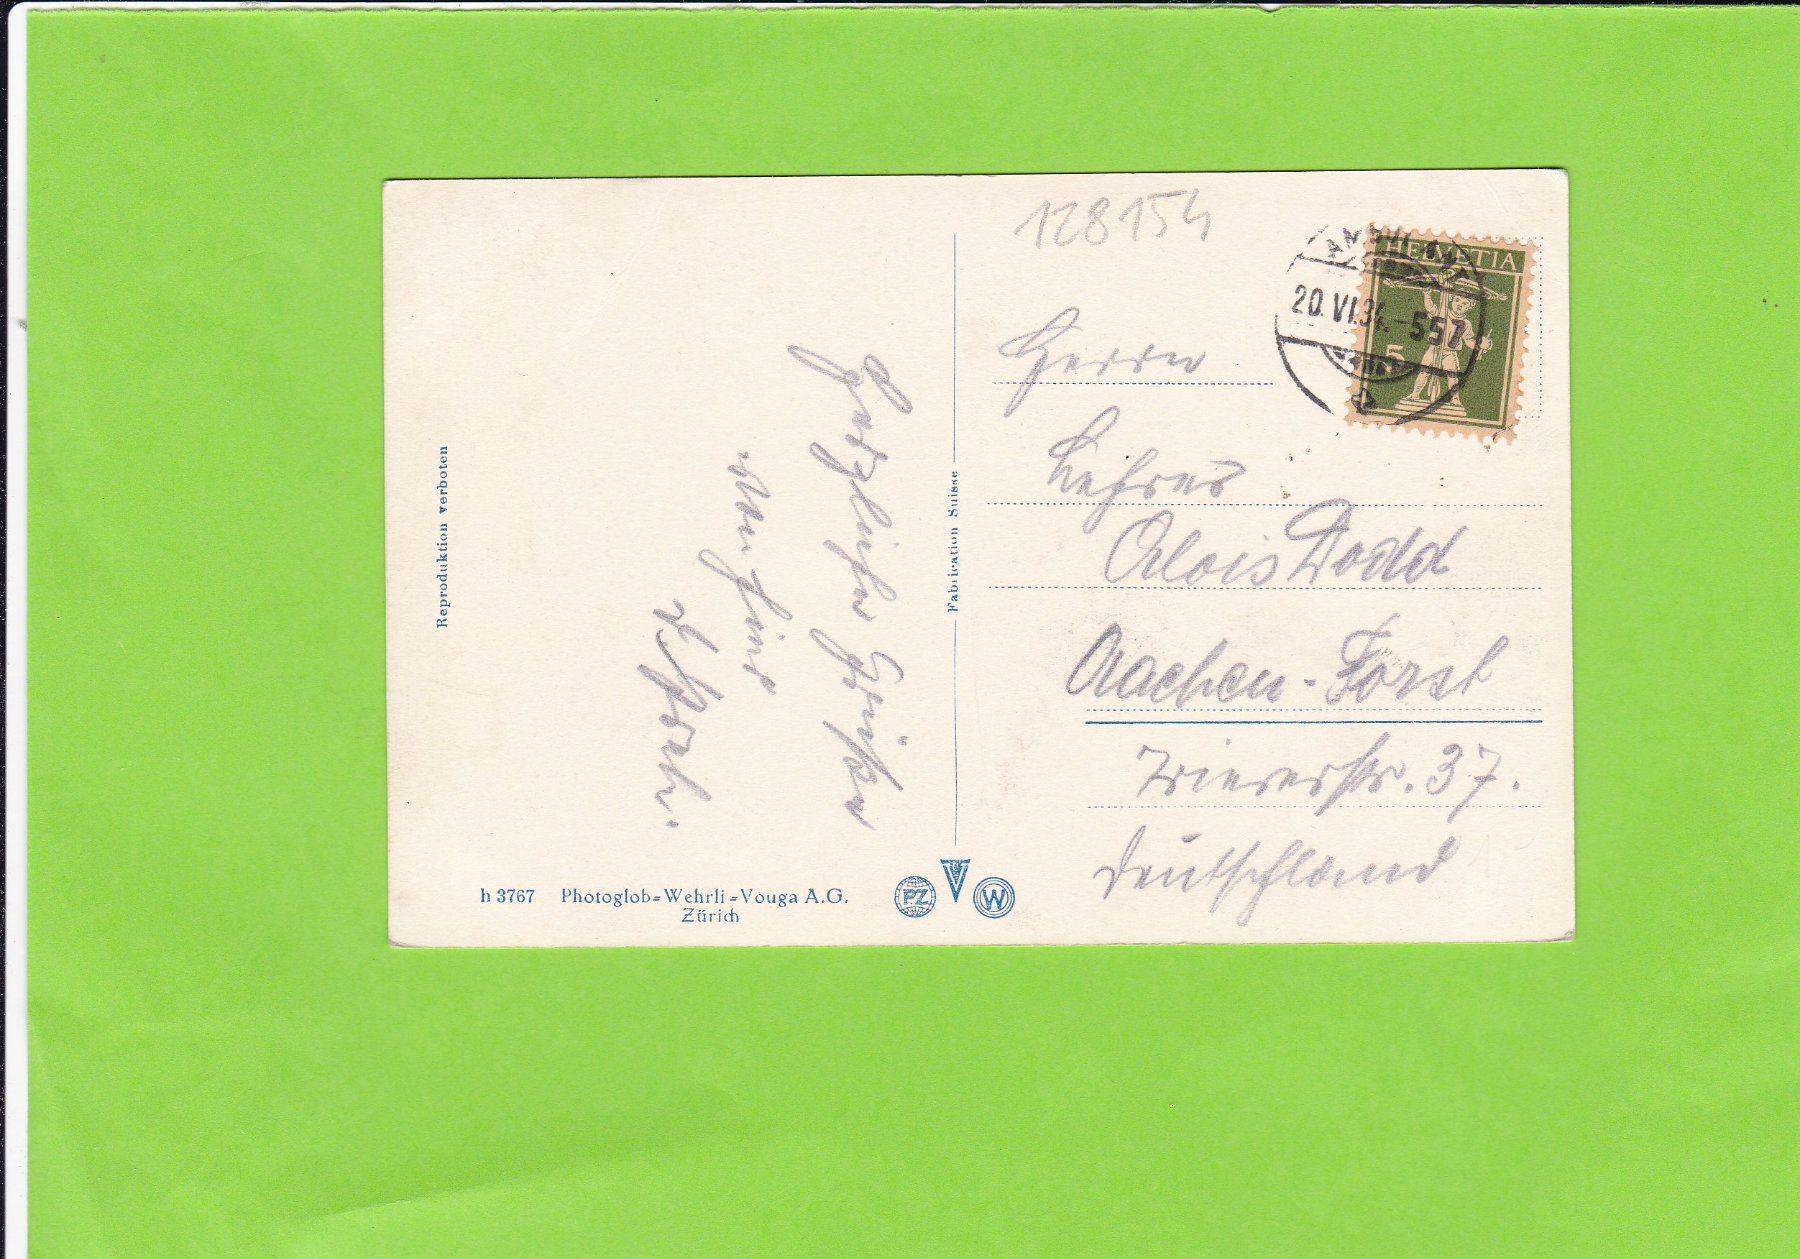 128154
HELVETIA
5
AMBULANT
20.VI.34.-557
Herrn
Lehrer
Alois Dodd
Aachen-Forst
Triererstr. 37.
Deutschland
Herzliche Grüße
von hier
Reproduktion verboten
Fabrication Suisse
h 3767 Photoglob-Wehrli-Vouga A.G.
Zürich
PZ
V
W